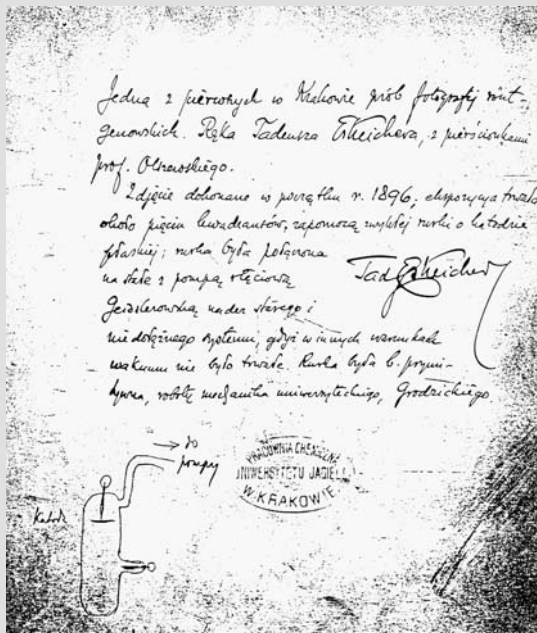 Jedna z pierwszych w Krakowie prób fotografij rönt-
genowskich. Ręka Tadeusza Estreichera, z pierścionkami
prof. Olszewskiego.
Zdjęcie dokonane w początku r. 1896; ekspozycya trwała
około pięciu kwadransów, zapomocą zwykłej rurki o katodzie
płaskiej; rurka była połączona
na stałe z pompą rtęciową
Geisslerowską nader starego i
niedołężnego systemu, gdyż w innych warunkach
wakuum nie było trwałe. Rurka była b. prymi-
tywna, roboty mechanika uniwersyteckiego, Grodzickiego.
Tad Estreicher
do
pompy
Katoda
PRACOWNIA CHEMICZNA
UNIWERSYTETU JAGIELL.
W KRAKOWIE